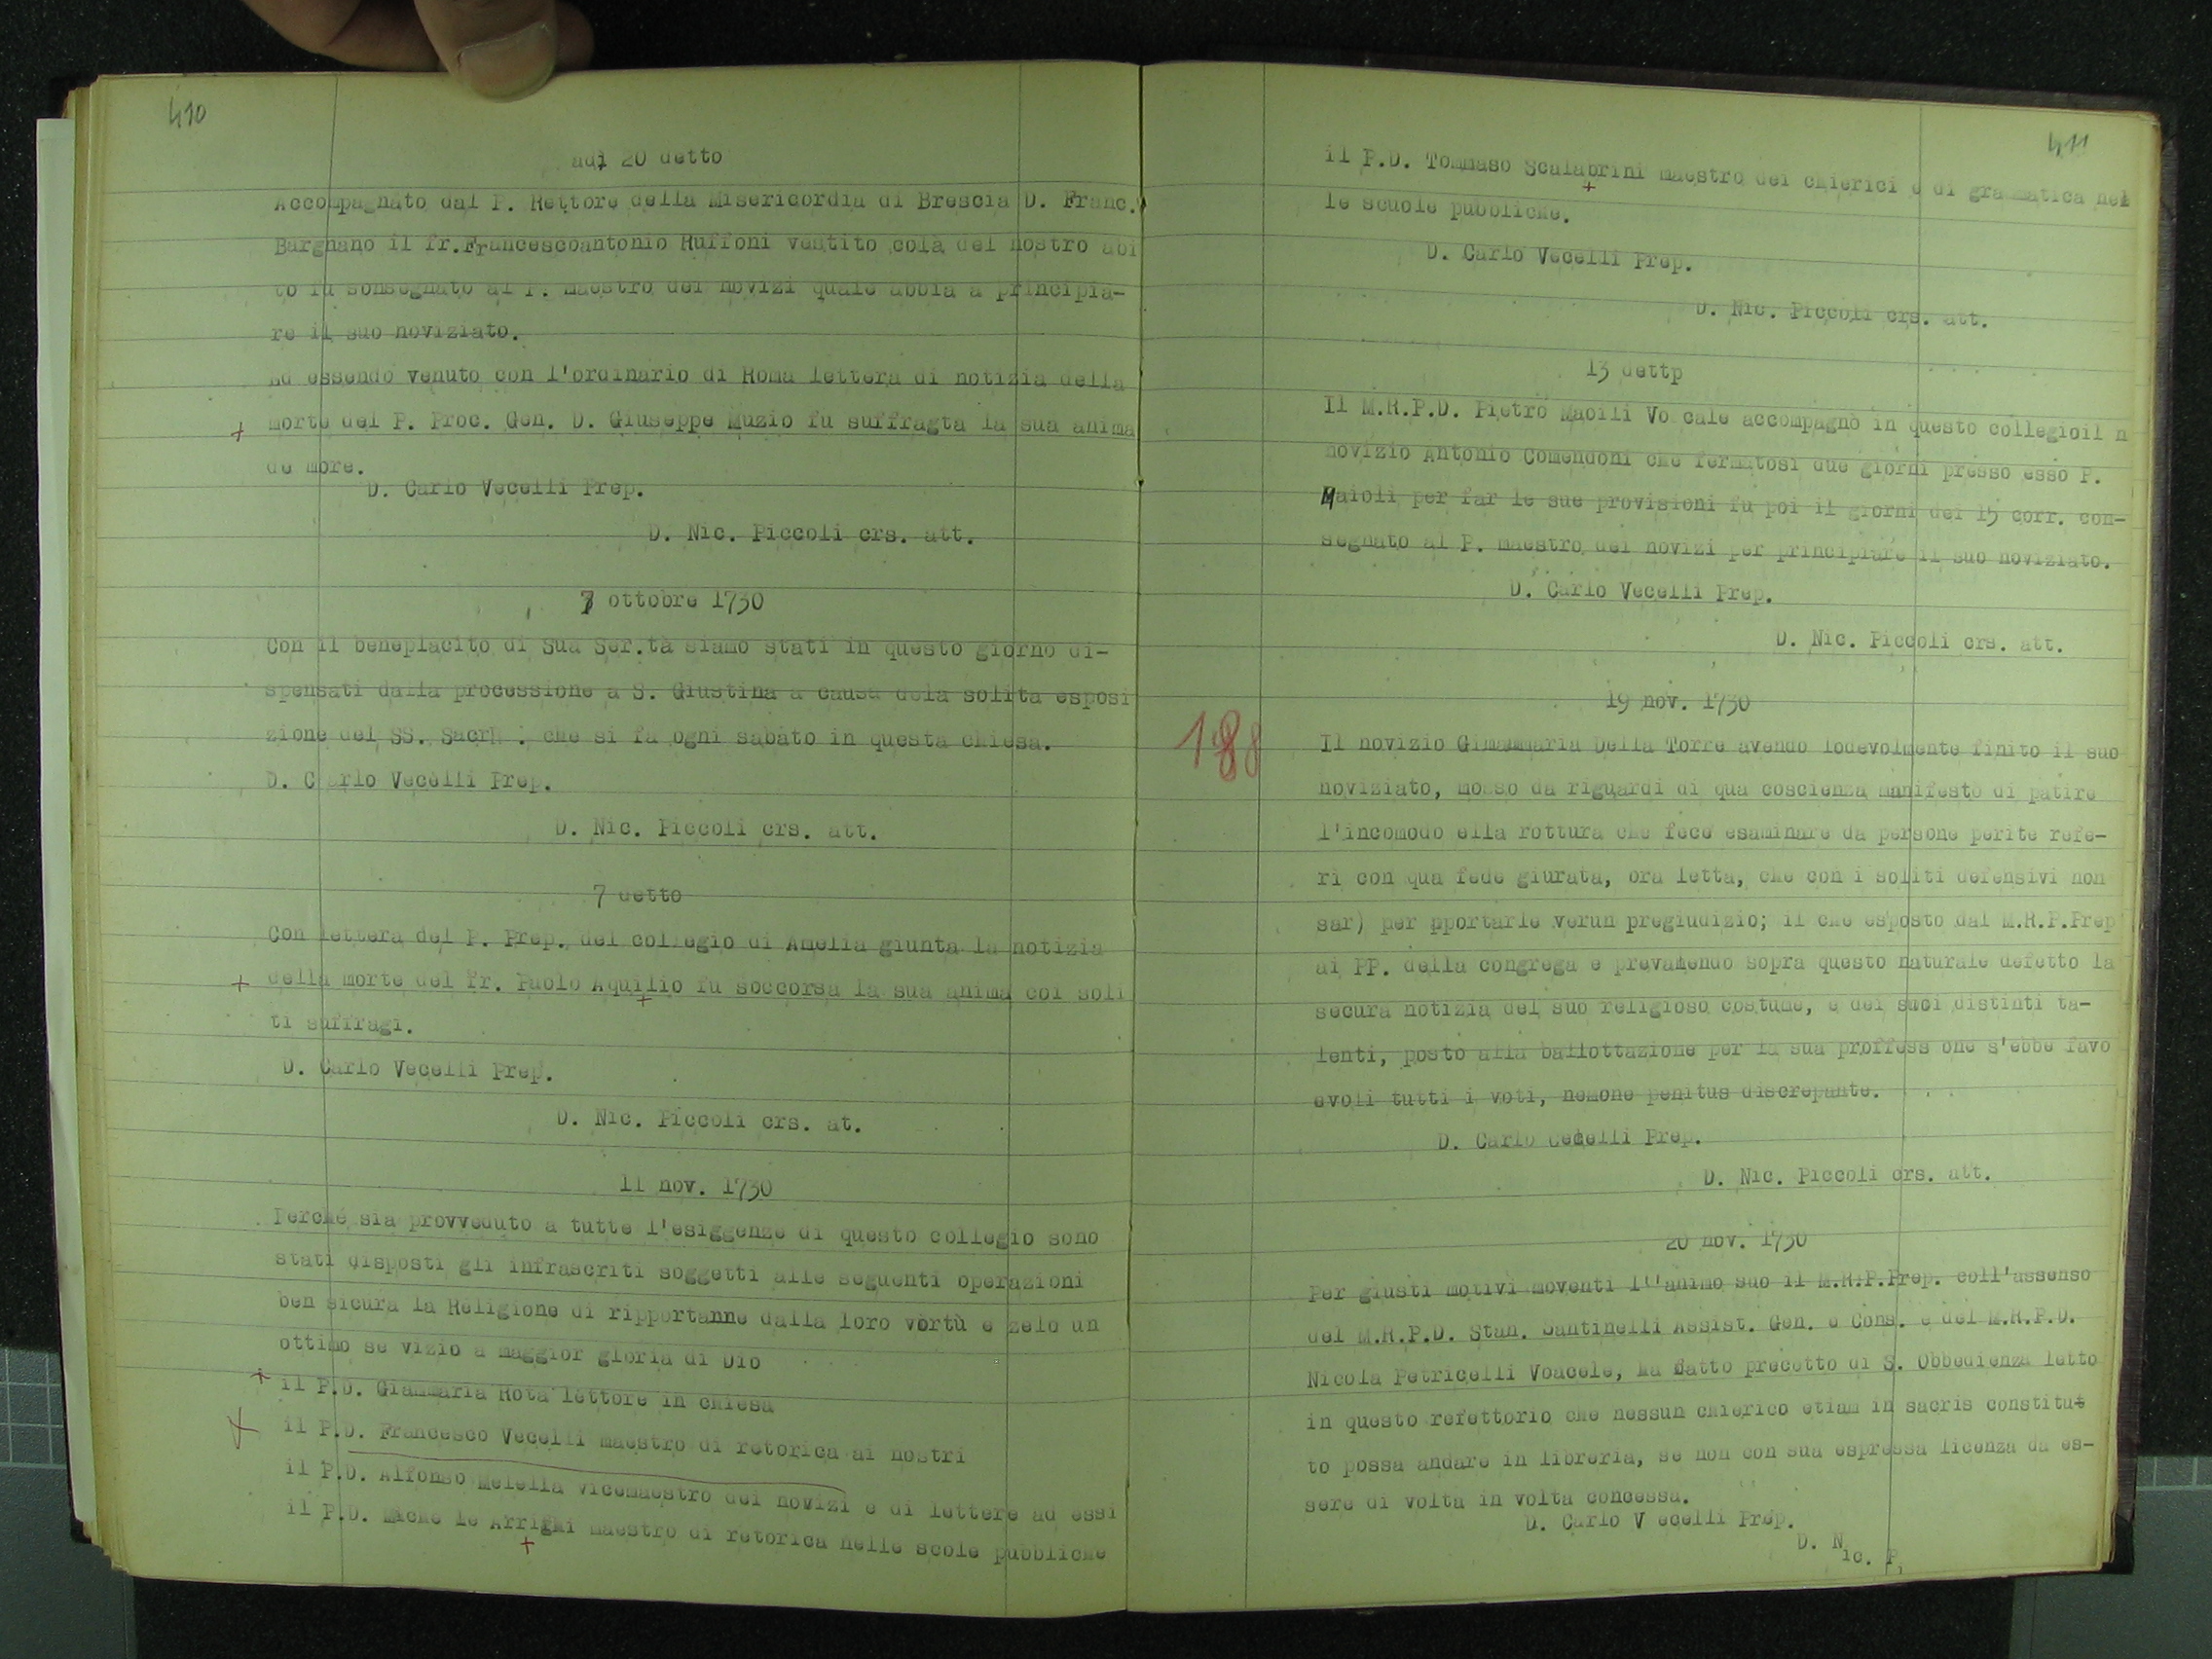 410
adì 20 detto
Accompagnato dal P. Rettore della Misericordia di Brescia D. Franc.
Bargnano il fr.Francescoantonio Ruffoni vestito colà del nostro abi
to fu sonsegnato al P. maestro dei novizi quale abbia a principia-
re il suo noviziato.
Ed essendo venuto con l'ordinario di Roma lettera di notizia della
+ morte del P. Proc. Gen. D. Giuseppe Muzio fu suffragta la sua anima
de more.
D. Carlo Vecelli Prep.
D. Nic. Piccoli crs. att.
7 ottobre 1730
Con il beneplacito di Sua Ser.tà siamo stati in questo giorno di-
spensati dalla processione a S. Giustina a causa dela solita esposi
zione del SS. Sacr. : che si fa ogni sabato in questa chiesa.
D. Carlo Vecelli Prep.
D. Nic. Piccoli crs. att.
7 detto
Con lettera del P. Prep. del collegio di Amelia giunta la notizia
+ della morte del fr. Paolo Aquilio fu soccorsa la sua anima coi soli
ti suffragi.
D. Carlo Vecelli Prep.
D. Nic. Piccoli crs. at.
11 nov. 1730
Perché sia provveduto a tutte l'esiggenze di questo collegio sono
stati disposti gli infrascriti soggetti alle seguenti operazioni
ben sicura la Religione di ripportanne dalla loro vortù e zelo un
ottimo se vizio a maggior gloria di Dio
+ il P.D. Gianmaria Rota lettore in chiesa
+ il P.D. Francesco Vecelli maestro di retorica ai nostri
il P.D. Alfonso Melella vicemaestro dei novizi e di lettere ad essi
il P.D. Miche le Arrighi maestro di retorica nelle scole pubbliche
411
il P.D. Tommaso Scalabrini maestro dei chierici e di gramatica nel
le scuole pubbliche.
D. Carlo Vecelli Prep.
D. Nic. Piccoli crs. att.
13 dettp
Il M.R.P.D. Pietro Maoili Vo cale accompagnò in questo collegioil n
novizio Antonio Comendoni che fermatosi due giorni presso esso P.
Maioli per far le sue provisioni fu poi il giorni dei 15 corr. con-
segnato al P. maestro dei novizi per principiare il suo noviziato.
D. Carlo Vecelli Prep.
D. Nic. Piccoli crs. att.
19 nov. 1730
188
Il novizio Della Torre avendo lodevolmente finito il suo
noviziato, mosso da riguardi di qua coscienza manifestò di patire
l'incomodo ella rottura che fece esaminare da persone perite refe-
ri con qua fede giurata, ora letta, che con i soliti defensivi non
sar) per pportarle verun pregiudizio; il che esposto dal M.R.P.Prep
ai PP. della congrega e prevamendo sopra questo naturale defetto la
secura notizia del suo religioso costume, e dei suoi distinti ta-
lenti, posto alla ballottazione per la sua proffess one s'ebbe favo
evoli tutti i voti, nemone penitus discrepante.
D. Carlo Prep.
D. Nic. Piccoli crs. att.
20 nov. 1730
Per giusti motivi moventi l''animo suo il M.R.P.Prep. coll'assenso
del M.R.P.D. Stan. Santinelli Assist. Gen. e Cons. e del M.R.P.D.
Nicola Petricelli Voacele, ha fatto precetto di S. Obbedienza letto
in questo refettorio che nessun chierico etiam in sacris constitut
to possa andare in libreria, se non con sua espressa licenza da es-
sere di volta in volta concessa.
D. Carlo V ecelli Prep.
D. Nic. P.